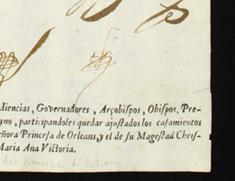 diencias, Governadores, Arçobispos, Obispos, Pre-
yno, participandoles quedar ajustados los casamientos
eñora Princesa de Orleans, y el de su Magestad Chris-
Maria Ana Victoria.